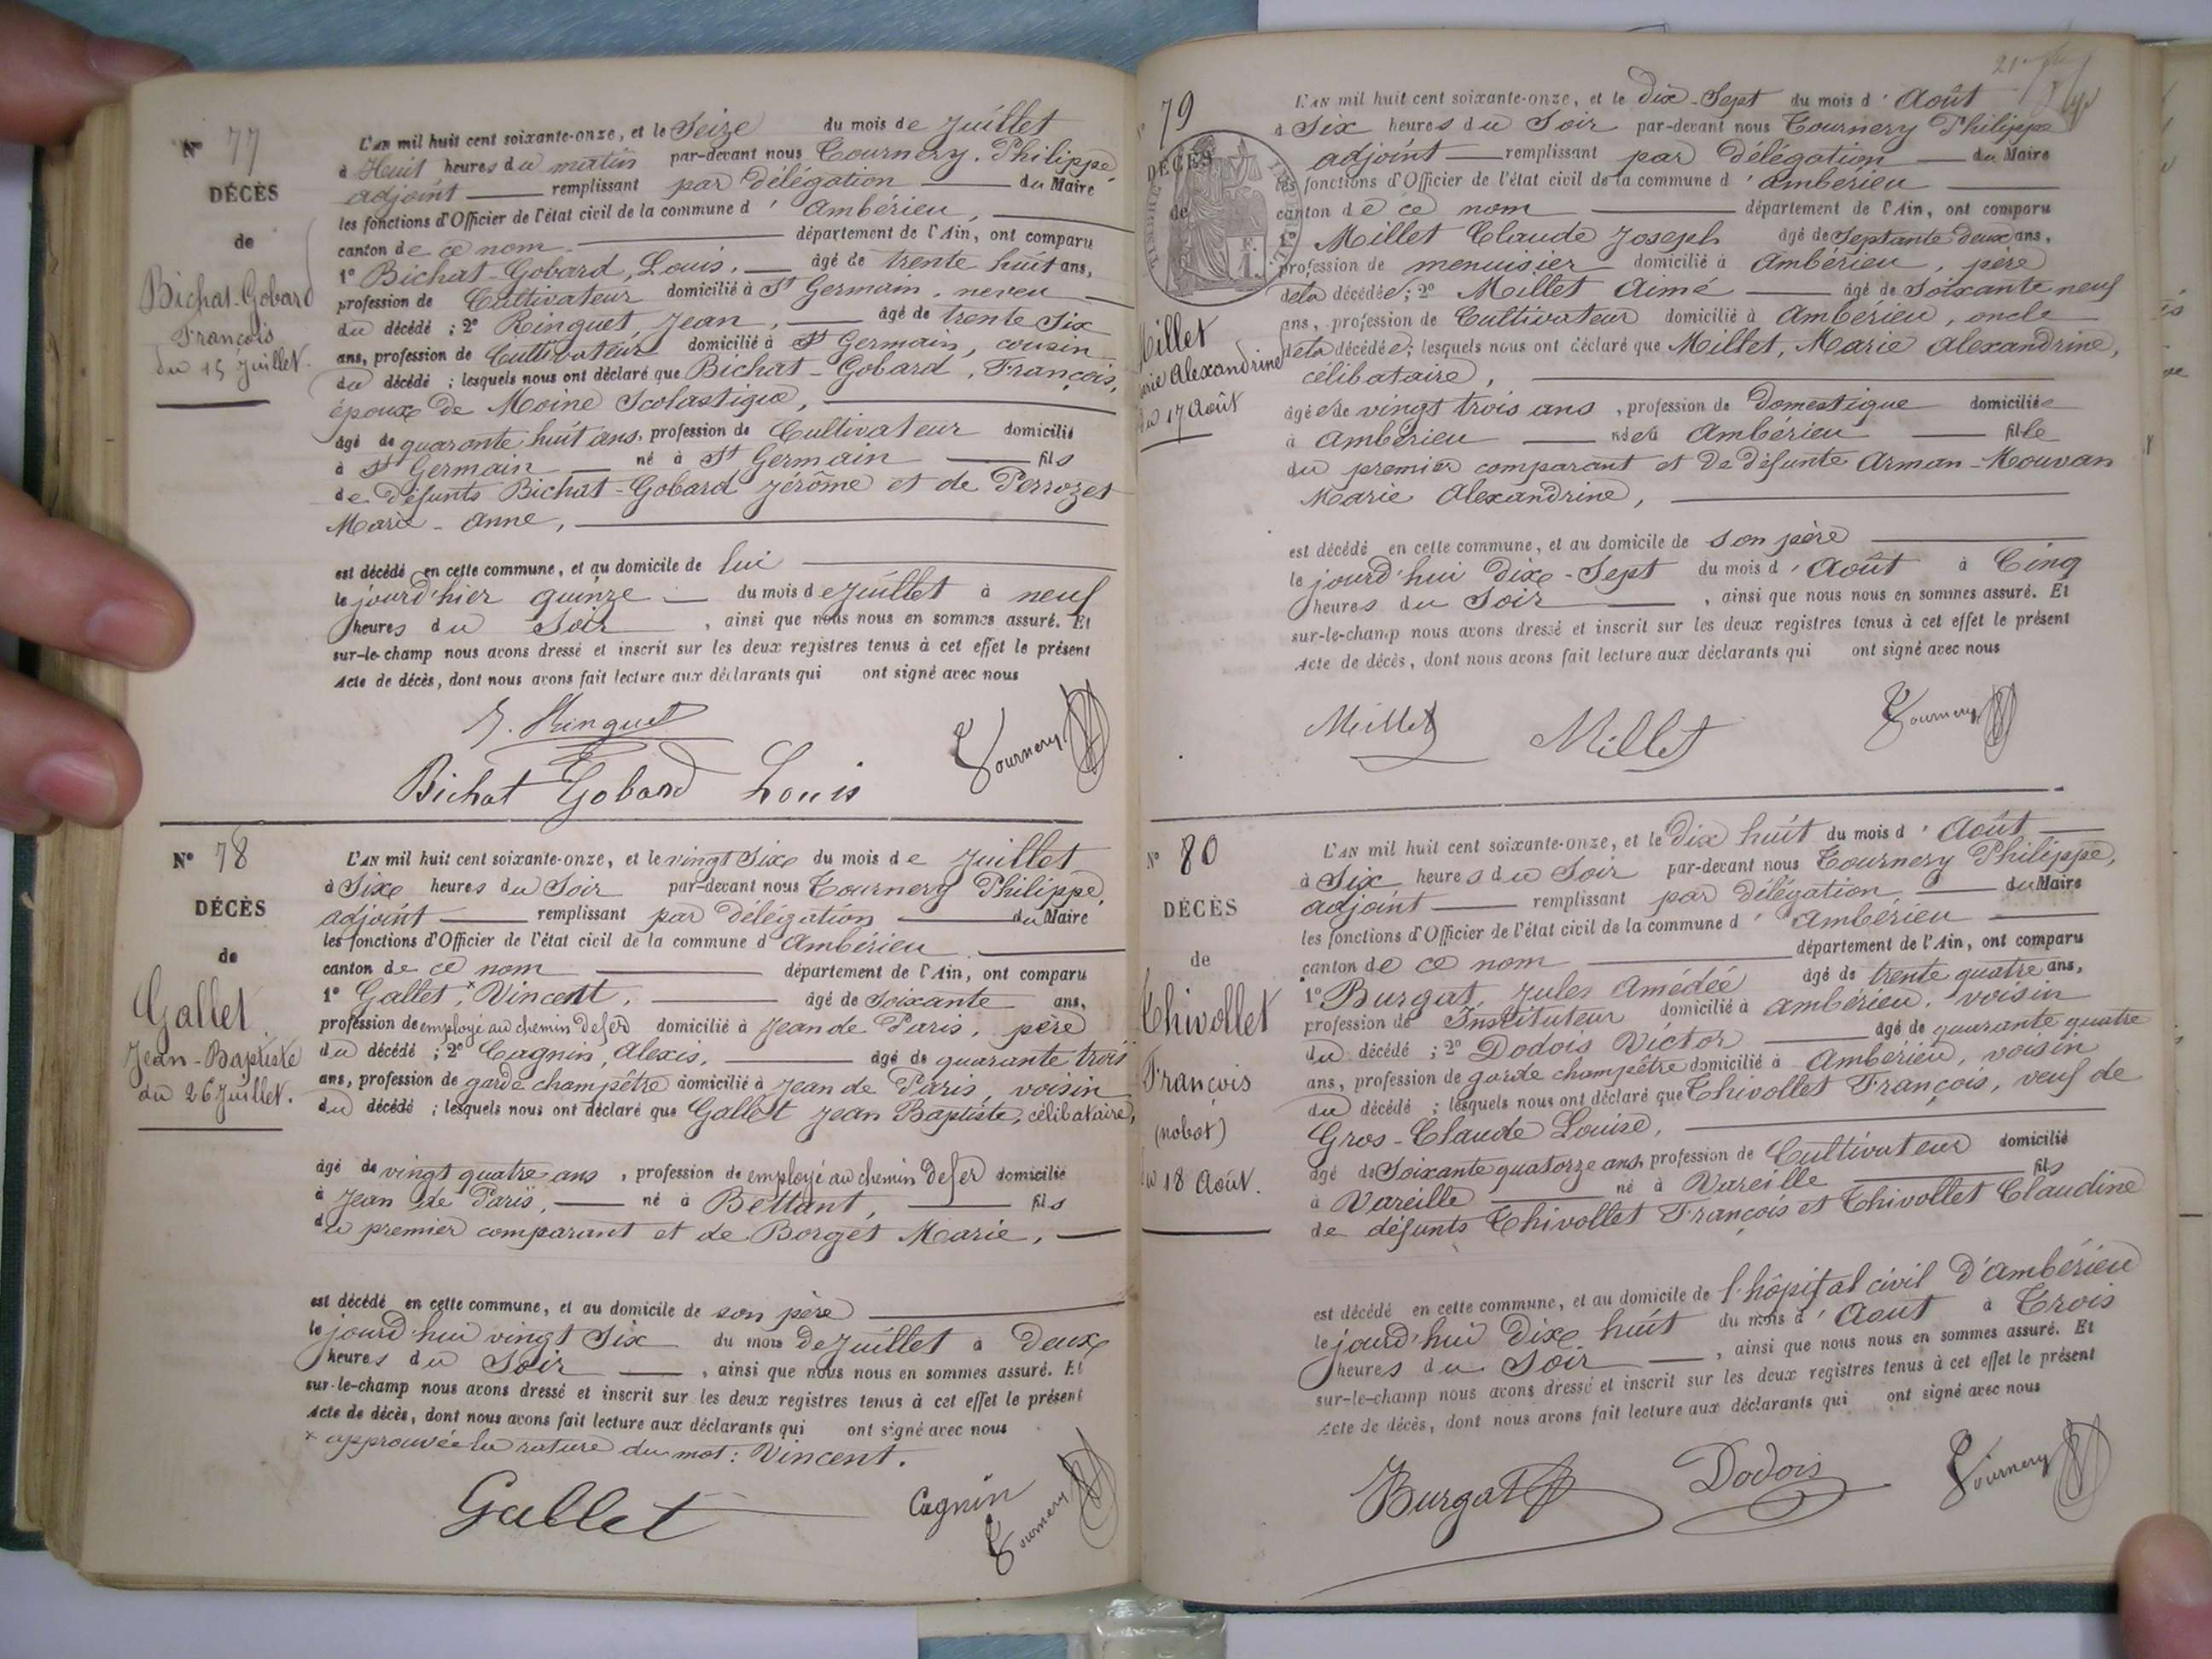 N° 77
DÉCÈS
de
Bichat-Gobard
François
du 15 Juillet.
L'AN mil huit cent soixante-onze, et le Seize du mois de Juillet
à Huit heures du matin par-devant nous Tournery, Philippe
adjoint remplissant par délégation du Maire
les fonctions d'Officier de l'état civil de la commune d'Ambérieu,
canton de ce nom département de l'Ain, ont comparu
1° Bichat-Gobard, Louis, âgé de trente huit ans,
profession de Cultivateur domicilié à St Germain, neveu
du décédé ; 2° Ringuet, Jean, âgé de trente Six
ans, profession de Cultivateur domicilié à St Germain, cousin
du décédé ; lesquels nous ont déclaré que Bichat-Gobard, François,
époux de Moine Scolastique,
âgé de quarante huit ans, profession de Cultivateur domicilié
à St Germain né à St Germain fils
de défunts Bichat-Gobard Jérôme et de Perrozet
Marie-Anne,
est décédé en cette commune, et au domicile de lui
le jourd'hier quinze du mois de Juillet à neuf
heures du Soir, ainsi que nous nous en sommes assuré. Et
sur-le-champ nous avons dressé et inscrit sur les deux registres tenus à cet effet le présent
Acte de décès, dont nous avons fait lecture aux déclarants qui ont signé avec nous
J. Ringuet
Tournery
Bichat Gobard Louis
N° 78
DÉCÈS
de
Gallet
Jean-Baptiste
du 26 Juillet.
L'AN mil huit cent soixante-onze, et le vingt Six du mois de Juillet
à Six heures du Soir par-devant nous Tournery Philippe,
adjoint remplissant par délégation du Maire
les fonctions d'Officier de l'état civil de la commune d'Ambérieu
canton de ce nom département de l'Ain, ont comparu
1° Gallet, x Vincent, âgé de Soixante ans,
profession de employé au chemin de fer domicilié à Jean de Paris, père
du décédé ; 2° Cagnin, Alexis, âgé de quarante trois
ans, profession de garde champêtre domicilié à Jean de Paris, voisin
du décédé ; lesquels nous ont déclaré que Gallet Jean Baptiste, célibataire,
âgé de vingt quatre ans, profession de employé au chemin de fer domicilié
à Jean de Paris, né à Bettant, fils
du premier comparant et de Borget Marie,
est décédé en cette commune, et au domicile de son père
le jourd'hui vingt Six du mois de Juillet à Deux
heures du Soir, ainsi que nous nous en sommes assuré. Et
sur-le-champ nous avons dressé et inscrit sur les deux registres tenus à cet effet le présent
Acte de décès, dont nous avons fait lecture aux déclarants qui ont signé avec nous
x approuvée la rature du mot : Vincent.
Gallet
Cagnin
Tournery
79
DÉCÈS
de
Millet
Marie Alexandrine
du 17 Août
L'AN mil huit cent soixante-onze, et le dix-Sept du mois d'Août
à Six heures du Soir par-devant nous Tournery Philippe
adjoint remplissant par délégation du Maire
les fonctions d'Officier de l'état civil de la commune d'Ambérieu
canton de ce nom département de l'Ain, ont comparu
1° Millet Claude Joseph âgé de Septante deux ans,
profession de menuisier domicilié à Ambérieu, père
de la décédée ; 2° Millet Aimé âgé de Soixante neuf
ans, profession de Cultivateur domicilié à Ambérieu, oncle
de la décédée ; lesquels nous ont déclaré que Millet, Marie Alexandrine,
célibataire,
âgée de vingt trois ans, profession de Domestique domiciliée
à Ambérieu née à Ambérieu fille
du premier comparant et de défunte Arman-Mouvan
Marie Alexandrine,
est décédé en cette commune, et au domicile de son père
le jourd'hui dix-Sept du mois d'Août à Cinq
heures du Soir, ainsi que nous nous en sommes assuré. Et
sur-le-champ nous avons dressé et inscrit sur les deux registres tenus à cet effet le présent
Acte de décès, dont nous avons fait lecture aux déclarants qui ont signé avec nous
Millet
Millet
Tournery
N° 80
DÉCÈS
de
Chivollet
François
(nobot)
du 18 Août.
L'AN mil huit cent soixante-onze, et le Dix huit du mois d'Août
à Six heures du Soir par-devant nous Tournery Philippe,
adjoint remplissant par délégation du Maire
les fonctions d'Officier de l'état civil de la commune d'Ambérieu
canton de ce nom département de l'Ain, ont comparu
1° Burgat, Jules Amédée âgé de trente quatre ans,
profession de Instituteur domicilié à Ambérieu, voisin
du décédé ; 2° Dodois Victor âgé de quarante quatre
ans, profession de garde champêtre domicilié à Ambérieu, voisin
du décédé ; lesquels nous ont déclaré que Chivollet François, veuf de
Gros-Claude Louise,
âgé de Soixante quatorze ans, profession de Cultivateur domicilié
à Vareille né à Vareille fils
de défunts Chivollet François et Chivollet Claudine
est décédé en cette commune, et au domicile de l'hôpital civil d'Ambérieu
le jourd'hui Dix huit du mois d'Aout à Trois
heures du Soir, ainsi que nous nous en sommes assuré. Et
sur-le-champ nous avons dressé et inscrit sur les deux registres tenus à cet effet le présent
Acte de décès, dont nous avons fait lecture aux déclarants qui ont signé avec nous
Burgat
Dodois
Tournery